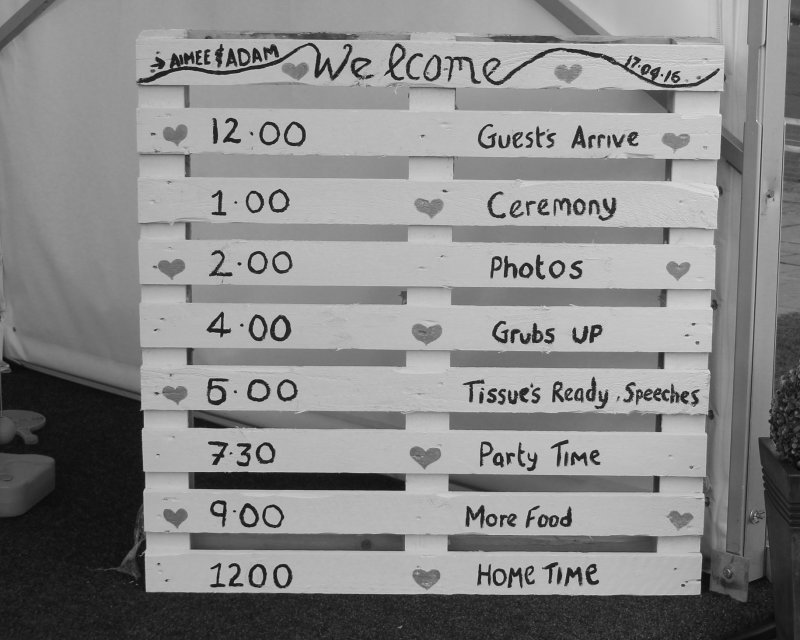 → AIMEE & ADAM Welcome 17.09.16
12.00 Guest's Arrive
1.00 Ceremony
2.00 Photos
4.00 Grubs UP
6.00 Tissue's Ready, Speeches
7.30 Party Time
9.00 More Food
1200 HOME TIME